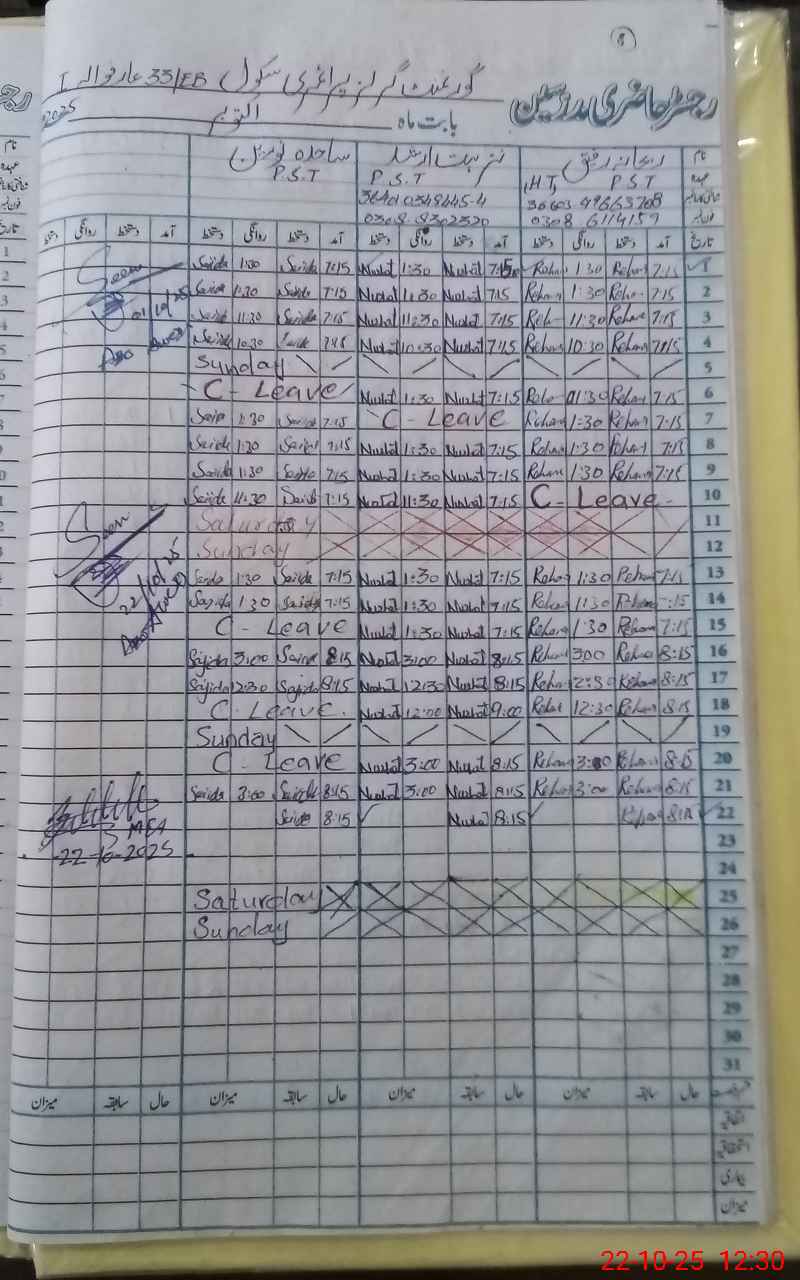 8
گورنمنٹ گرلز پرائمری سکول 33/EB عارفوالہ I
رجسٹر حاضری مدرسین
بابت ماہ اکتوبر 2025
نام ریحانہ رفیق نزہت ارشد ساجدہ نورین
عہدہ P.S.T (H.T) P.S.T P.S.T
36401 0348445-4
0308 6114159 0308 8302320
تاریخ آمد دستخط روانگی دستخط آمد دستخط روانگی دستخط آمد دستخط روانگی دستخط آمد دستخط روانگی دستخط
Sajida 1:30 Sajida 7:15 Nuzhat 1:30 Nuzhat 7:15 Rehana 1:30 Rehana 7:15 1
Sajida 1:30 Sajida 7:15 Nuzhat 1:30 Nuzhat 7:15 Rehana 1:30 Rehana 7:15 2
Sajida 11:30 Sajida 7:15 Nuzhat 11:30 Nuzhat 7:15 Reh 11:30 Rehana 7:15 3
Sajida 10:30 Sajida 7:15 Nuzhat 10:30 Nuzhat 7:15 Rehana 10:30 Rehana 7:15 4
Sunday 5
C - Leave Nuzhat 1:30 Nuzhat 7:15 Reha 1:30 Rehana 7:15 6
Sajida 1:30 Sajida 7:15 C - Leave Rehana 1:30 Rehana 7:15 7
Sajida 1:30 Sajida 7:15 Nuzhat 1:30 Nuzhat 7:15 Rehana 1:30 Rehana 7:15 8
Sajida 1:30 Sajida 7:15 Nuzhat 1:30 Nuzhat 7:15 Rehana 1:30 Rehana 7:15 9
Sajida 11:30 Sajida 7:15 Nuzhat 11:30 Nuzhat 7:15 C - Leave - 10
Saturday 11
Sunday 12
Sajida 1:30 Sajida 7:15 Nuzhat 1:30 Nuzhat 7:15 Rehana 1:30 Rehana 7:15 13
Sajida 1:30 Sajida 7:15 Nuzhat 1:30 Nuzhat 7:15 Rehana 1:30 Rehana 7:15 14
C - Leave Nuzhat 1:30 Nuzhat 7:15 Rehana 1:30 Rehana 7:15 15
Sajida 3:00 Sajida 8:15 Nuzhat 3:00 Nuzhat 8:15 Rehana 3:00 Rehana 8:15 16
Sajida 12:30 Sajida 8:15 Nuzhat 12:30 Nuzhat 8:15 Rehana 12:30 Rehana 8:15 17
C - Leave. Nuzhat 12:00 Nuzhat 9:00 Rehana 12:30 Rehana 8:15 18
Sunday 19
C - Leave Nuzhat 3:00 Nuzhat 8:15 Rehana 3:00 Rehana 8:15 20
Sajida 3:00 Sajida 8:15 Nuzhat 3:00 Nuzhat 8:15 Rehana 3:00 Rehana 8:15 21
Sajida 8:15 Nuzhat 8:15 Rehana 8:15 22
23
24
Saturday 25
Sunday 26
27
28
29
30
31
Seen
01/10/25
Seen
22/10/25
22-10-2025
حال سابقہ میزان حال سابقہ میزان حال سابقہ میزان حال سابقہ میزان
اتفاقی
استحقاقی
بیماری
میزان
22-10-25 12:30